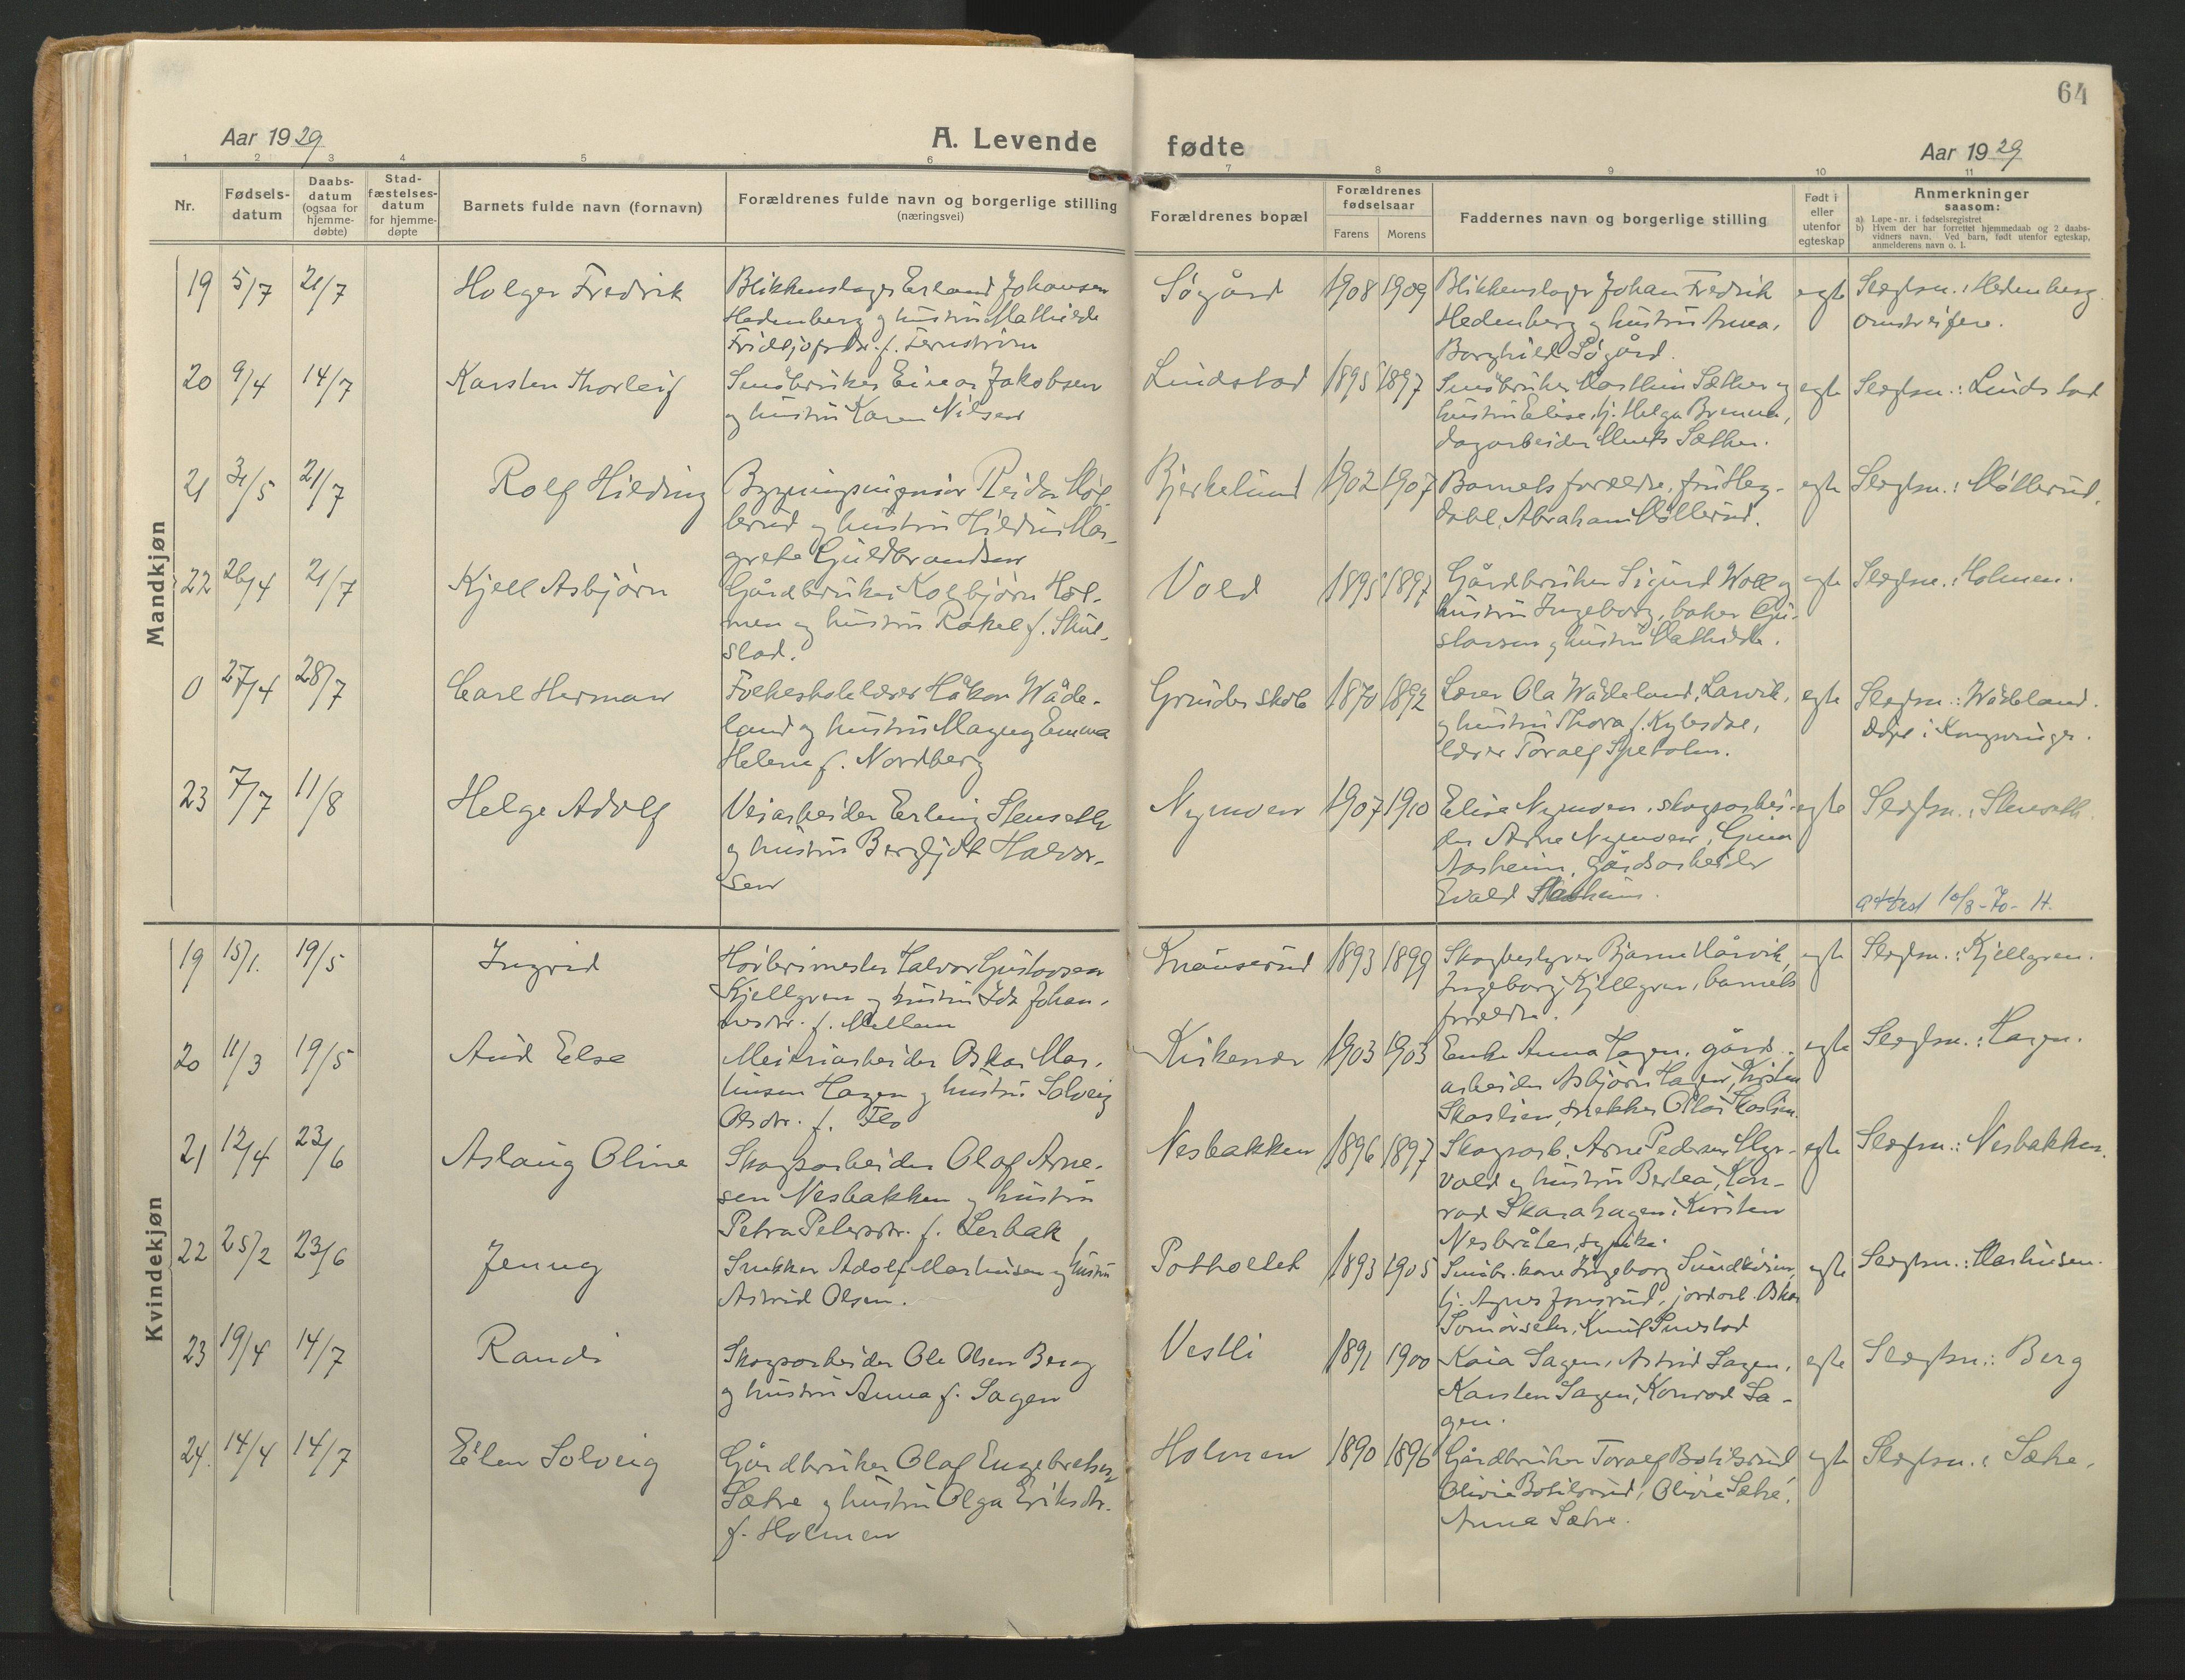 64
Aar 1929
A. Levende fødte
Aar 1929
1 2 3 4 5 6 7 8 9 10 11
Nr.
Fødsels-
datum
Daabs-
datum
(ogsaa for
hjemme-
døbte)
Stad-
fæstelses-
datum
for hjemme-
døpte
Barnets fulde navn (fornavn)
Forældrenes fulde navn og borgerlige stilling
(næringsvei)
Forældrenes bopæl
Forældrenes
fødselsaar
Farens Morens
Faddernes navn og borgerlige stilling
Født i
eller
utenfor
egteskap
Anmerkninger
saasom:
a) Løpe-nr. i fødselsregistret
b) Hvem der har forrettet hjemmedaab og 2 daabs-
vidners navn. Ved barn, født utenfor egteskap,
anmelderens navn o. l.
Mandkjøn
19 5/7 21/7 Holger Fredrik
Blikkenslager Erland Johansen
Hedenberg og hustru Mathilde
Fridtjofsdr. f. Fernstrøm
Søgård 1908 1909
Blikkenslager Johan Fredrik
Hedenberg og hustru Anna,
Borghild Søgård.
egte
Slegtsn.: Hedenberg.
omstreifere.
20 9/4 14/7 Karsten Thorleif
Småbruker Einar Jakobsen
og hustru Karen Nilsen
Lindstad 1895 1897
Småbruker Marthin Sæther og
hustru Elise, tj. Helga Bremna,
dagarbeider Sæther.
egte
Slegtsn.: Lindstad
21 31/5 21/7 Rolf Hilding
Bygningsingeniør Reidar Møl-
lerud og hustru Hildur Mar-
grete Guldbrandsen
Bjerkelund 1902 1907
Barnets forældre, fru Heg-
dahl, Abraham Møllerud.
egte
Slegtsn.: Møllerud.
22 26/4 21/7 Kjell Asbjørn
Gårdbruker Kolbjørn Hol-
men og hustru Rakel f. Skul-
stad.
Vold 1895 1897
Gårdbruker Sigurd Woll og
hustru Ingeborg, baker Gu-
stavsen og hustru Mathilde.
egte
Slegtsn.: Holmen.
0 27/4 28/7 Carl Herman
Folkeskolelærer Håkon Wåde-
land og hustru Magny Emma
Helene f. Nordberg
Grinder skole 1870 1892
Lærer Ola Wådeland, Larvik,
og hustru Thora f. Kylesdal,
lærer Toralf Spetalen.
egte
Slegtsn.: Wådeland.
Døpt i Kongsvinger.
23 7/7 11/8 Helge Adolf
Veiarbeider Erling Stenseth
og hustru Bergljot Halvor-
sen
Nymoen 1907 1910
Elise Nymoen, skogsarbei-
der Arne Nymoen, Gina
Aasheim, gårdsarbeider
Evald Aasheim.
egte
Slegtsn.: Stenseth.
attest 10/3-70- H.
Kvindekjøn
19 15/1. 19/5 Ingrid
Halvor Gustavsen
Kjellgren og hustru Ida Johan-
nesdr. f. Mellem
Knauserud 1893 1899
Skogbestyrer Bjarne Hårvik,
Ingeborg Kjellgren, barnets
forældre.
egte
Slegtsn.: Kjellgren.
20 11/3 19/5 Aud Else
Meieriarbeider Oskar Mar-
tinsen Hagen og hustru Solveig
Olsdr. f. Flo
Kirkenær 1903 1903
Enke Anna Hagen, gårds-
arbeider Asbjørn Hagen, Kirsten
Skaslien, snekker Olav Skaslien.
egte
Slegtsn.: Hagen.
21 12/4 23/6 Aslaug Oline
Skogsarbeider Olaf Arne-
sen Nesbakken og hustru
Petra Petersdr. f. Lerbak
Nesbakken 1896 1897
Skogsarb. Arne Pedersen Myr-
vold og hustru Bertea, Kon-
rad Skarahagen, Kirsten
Nesbråten, sypike.
egte
Slegtsn.: Nesbakken.
22 25/2 23/6 Jenny
Snekker Adolf Marthinsen og hustru
Astrid Olsen.
Potholtet 1893 1905
Småbr.kone Ingeborg
tj. Agnes, jordarb. Oskar
Knut
egte
Slegtsn.: Marthinsen.
23 19/4 14/7 Randi
Skogsarbeider Ole Olsen Berg
og hustru Anna f. Sagen
Vestli 1891 1900
Kaia Sagen, Astrid Sagen,
Karsten Sagen, Konrad Sa-
gen.
egte
Slegtsn.: Berg
24. 14/4 14/7 Eilen Solveig
Gårdbruker Olaf Engebretsen
Sætre og hustru Olga Eriksdr.
f. Holmen
Holmen 1890 1896
Gårdbruker Toralf Botilsrud
Olivia Botilsrud, Olivia Sætre,
Anna Sætre.
egte
Slegtsn.: Sætre.